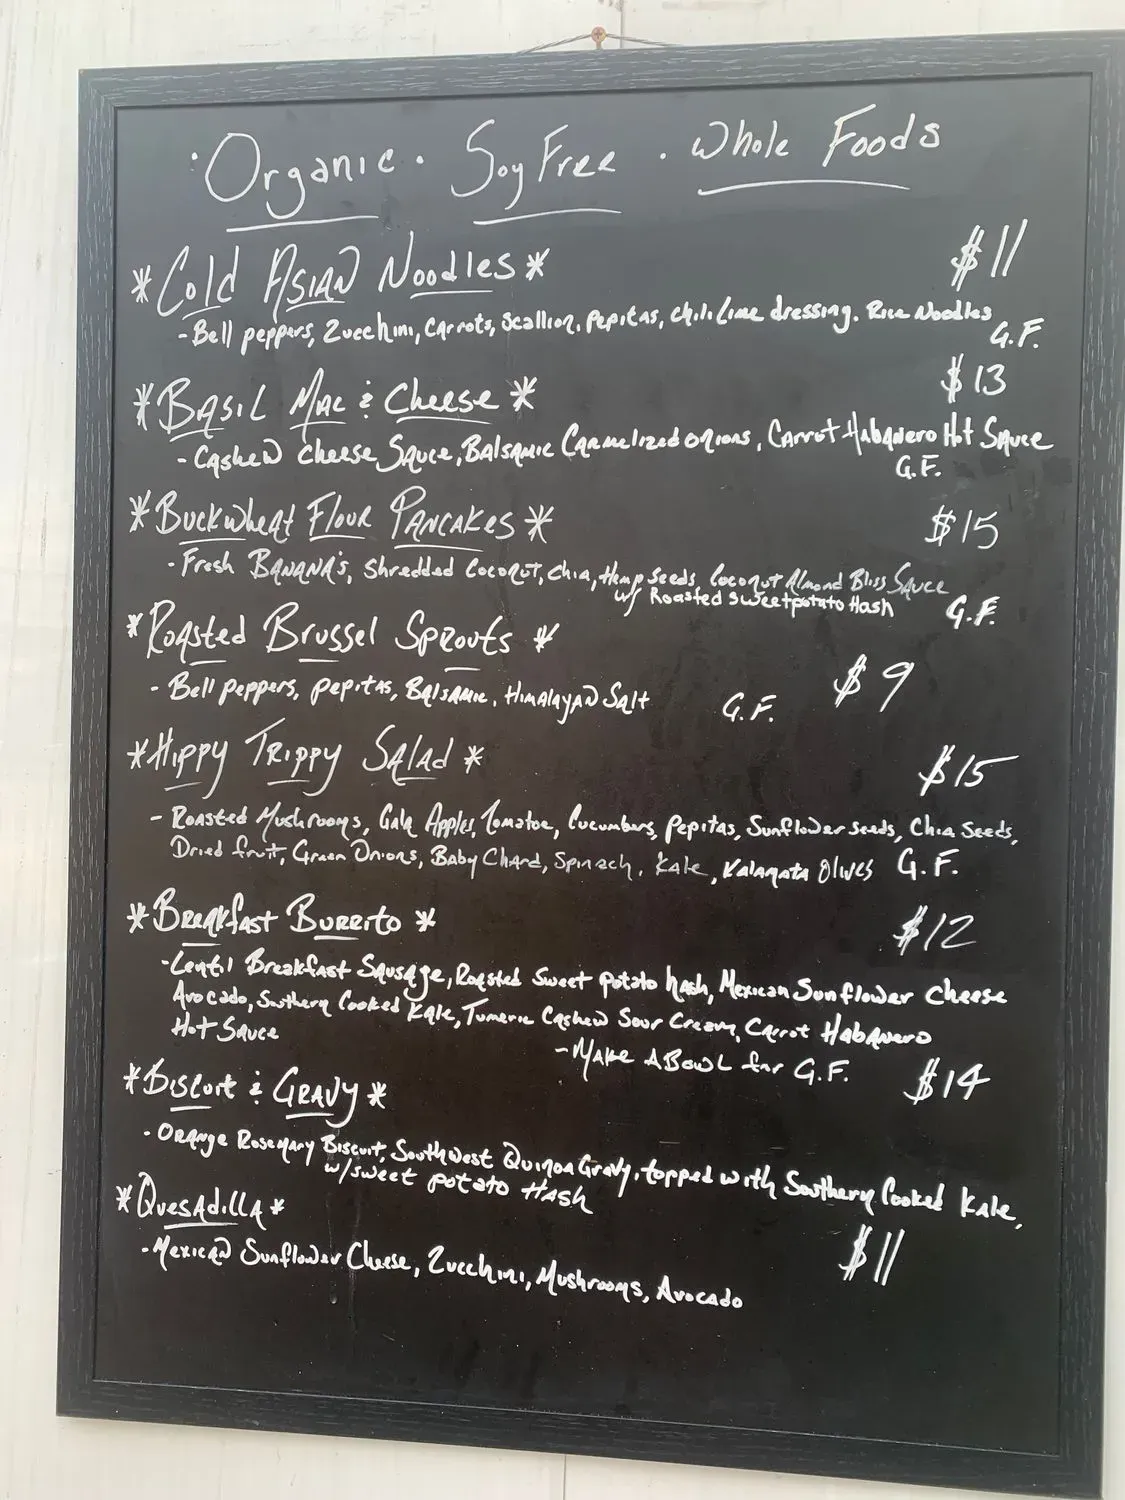 · Organic · Soy Free · Whole Foods
*Cold Asian Noodles* $11
- Bell peppers, Zucchini, Carrots, Scallion, Pepitas, Chili Lime dressing. Rice Noodles
G.F.
*Basil Mac & Cheese* $13
- Cashew Cheese Sauce, Balsamic Carmelized onions, Carrot Habanero Hot Sauce
G.F.
*Buckwheat Flour Pancakes* $15
- Fresh Banana's, Shredded Coconut, Chia, Hemp Seeds, Coconut Almond Bliss Sauce
w/ Roasted Sweet potato Hash G.F.
*Roasted Brussel Sprouts* $9
- Bell peppers, pepitas, Balsamic, Himalayan Salt G.F.
*Hippy Trippy Salad* $15
- Roasted Mushrooms, Gala Apples, Tomatoe, Cucumbers, Pepitas, Sunflower seeds, Chia Seeds,
Dried fruit, Green Onions, Baby Chard, Spinach, Kale, Kalamata Olives G.F.
*Breakfast Burrito* $12
- Lentil Breakfast Sausage, Roasted Sweet potato hash, Mexican Sunflower Cheese
Avocado, Southern Cooked Kale, Tumeric Cashew Sour Cream, Carrot Habanero
Hot Sauce
- Make A Bowl for G.F.
*Biscuit & Gravy* $14
- Orange Rosemary Biscuit, Southwest Quinoa Gravy, topped with Southern Cooked Kale,
w/sweet potato Hash
*Quesadilla* $11
- Mexican Sunflower Cheese, Zucchini, Mushrooms, Avocado